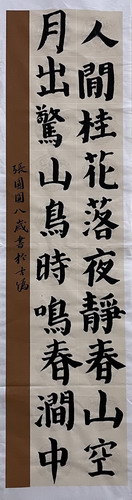 人閒桂花落夜靜春山空
月出驚山鳥時鳴春澗中
張圓圓八歲書於士瀛